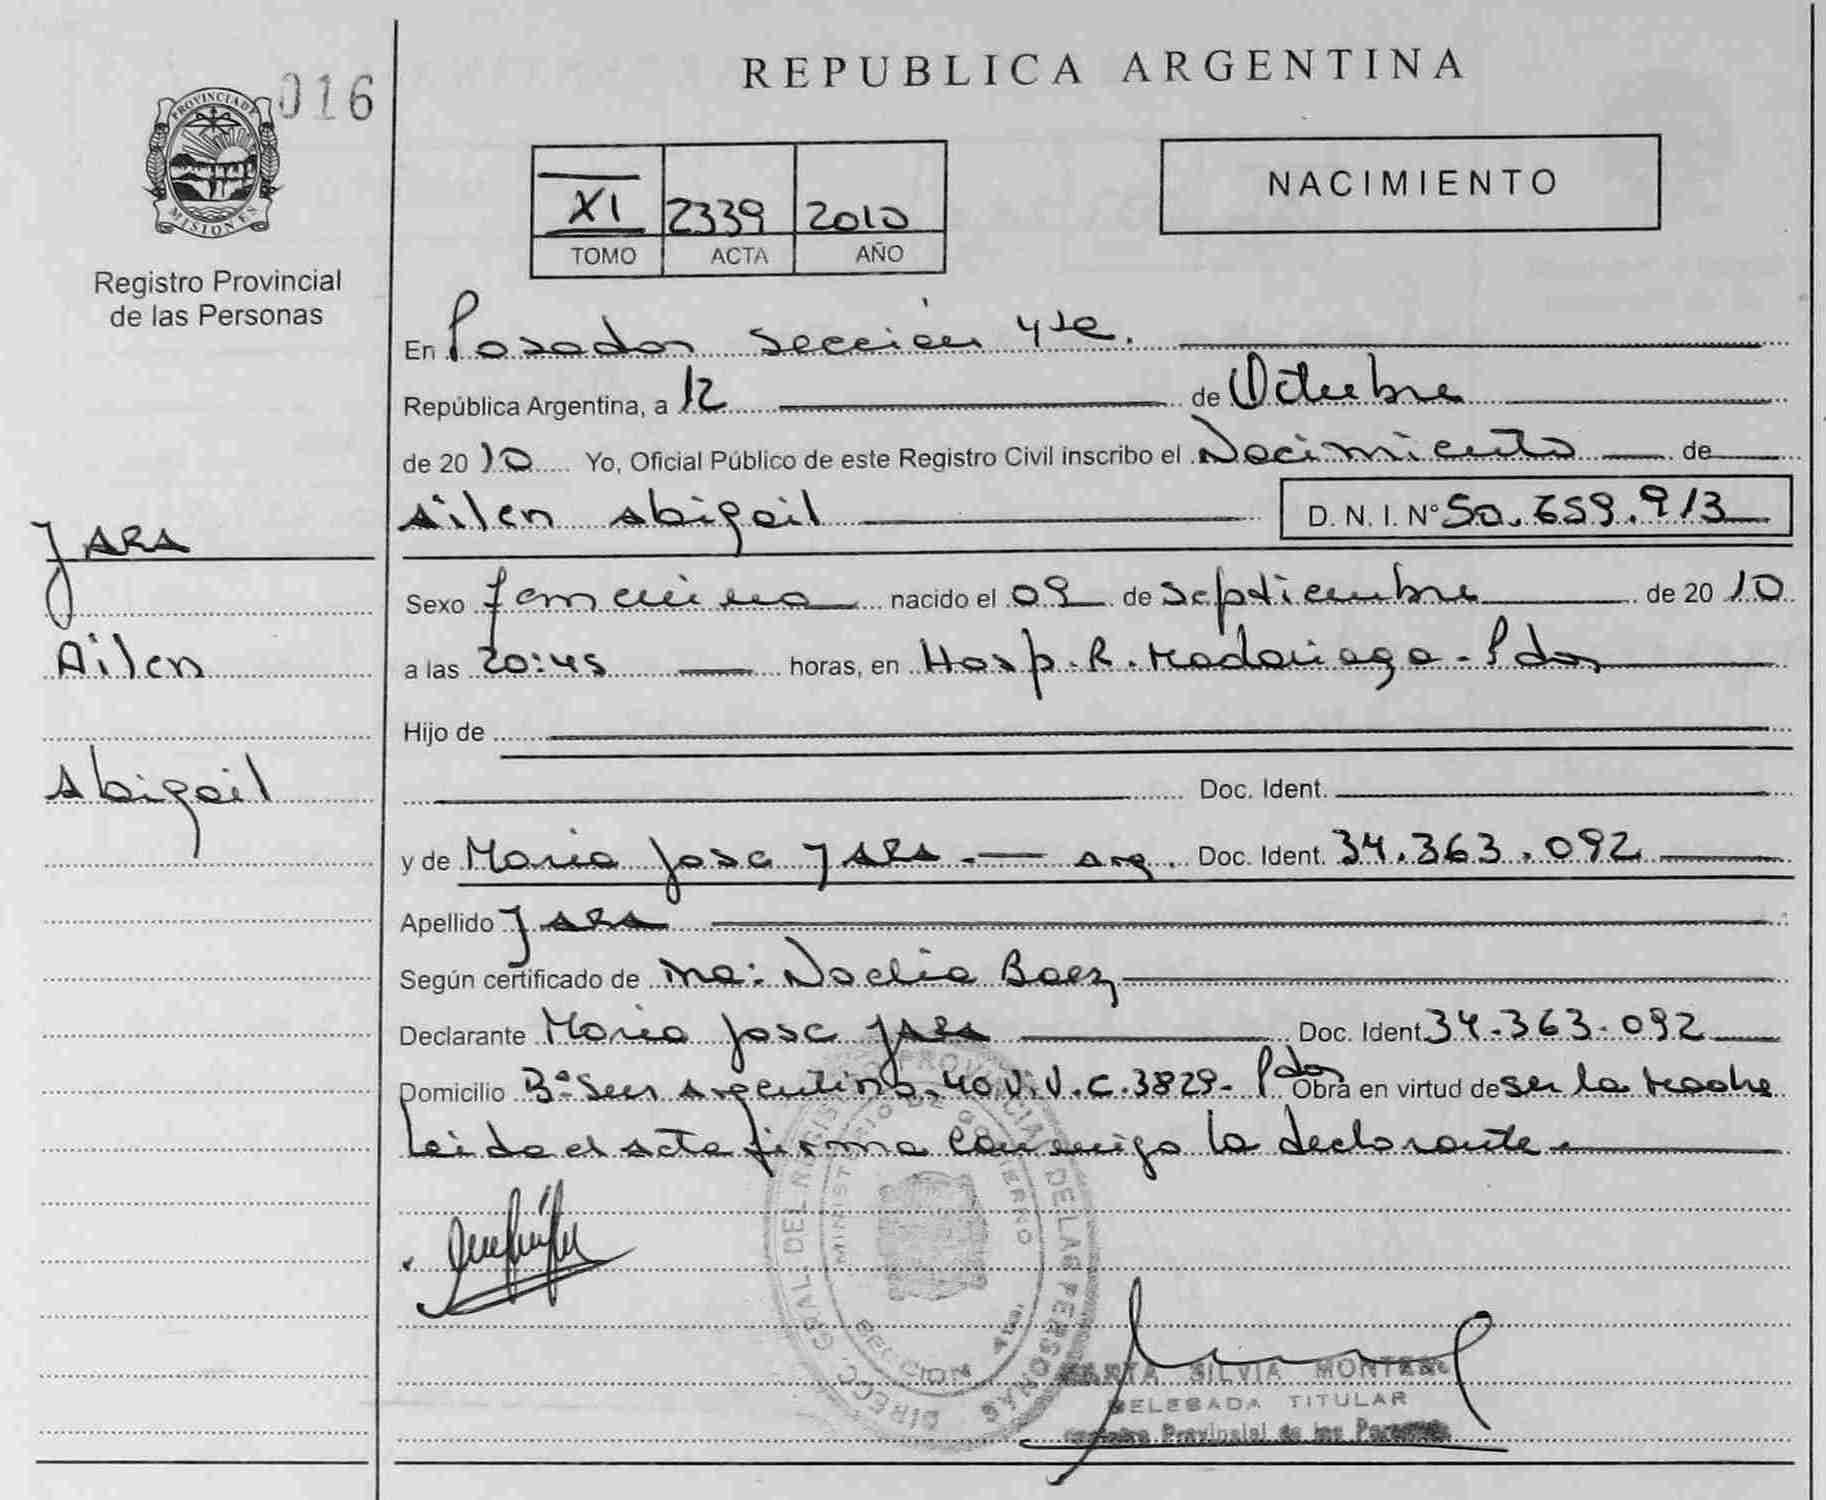 016
PROVINCIA DE
MISIONES
Registro Provincial
de las Personas
JARA
Ailen
Abigail
REPUBLICA ARGENTINA
XI 2339 2010
TOMO ACTA AÑO
NACIMIENTO
En Posadas Sección 4ta.
República Argentina, a 12 de Octubre
de 2010 Yo, Oficial Público de este Registro Civil inscribo el Nacimiento de
Ailen Abigail D. N. I. N° 50.659.913
Sexo femenino nacido el 09 de septiembre de 2010
a las 20:45 horas, en Hosp. R. Madariaga - Pdas
Hijo de
Doc. Ident.
y de Maria Jose JARA - arg. Doc. Ident. 34.363.092
Apellido JARA
Según certificado de ma: Noelia Baez
Declarante Maria Jose JARA Doc. Ident 34.363.092
Domicilio B° Sur Argentino, 40.V.V.C.3829 - Pdas Obra en virtud de ser la Madre
Leida el acta firma conmigo la declarante
DIRECC. GRAL. DEL REGIST PROVINCIAL DE LAS PERSONAS
MINISTERIO DE GOBIERNO
SECCION 4ta.
MARTA SILVIA MONTE
DELEGADA TITULAR
Registro Provincial de las Personas